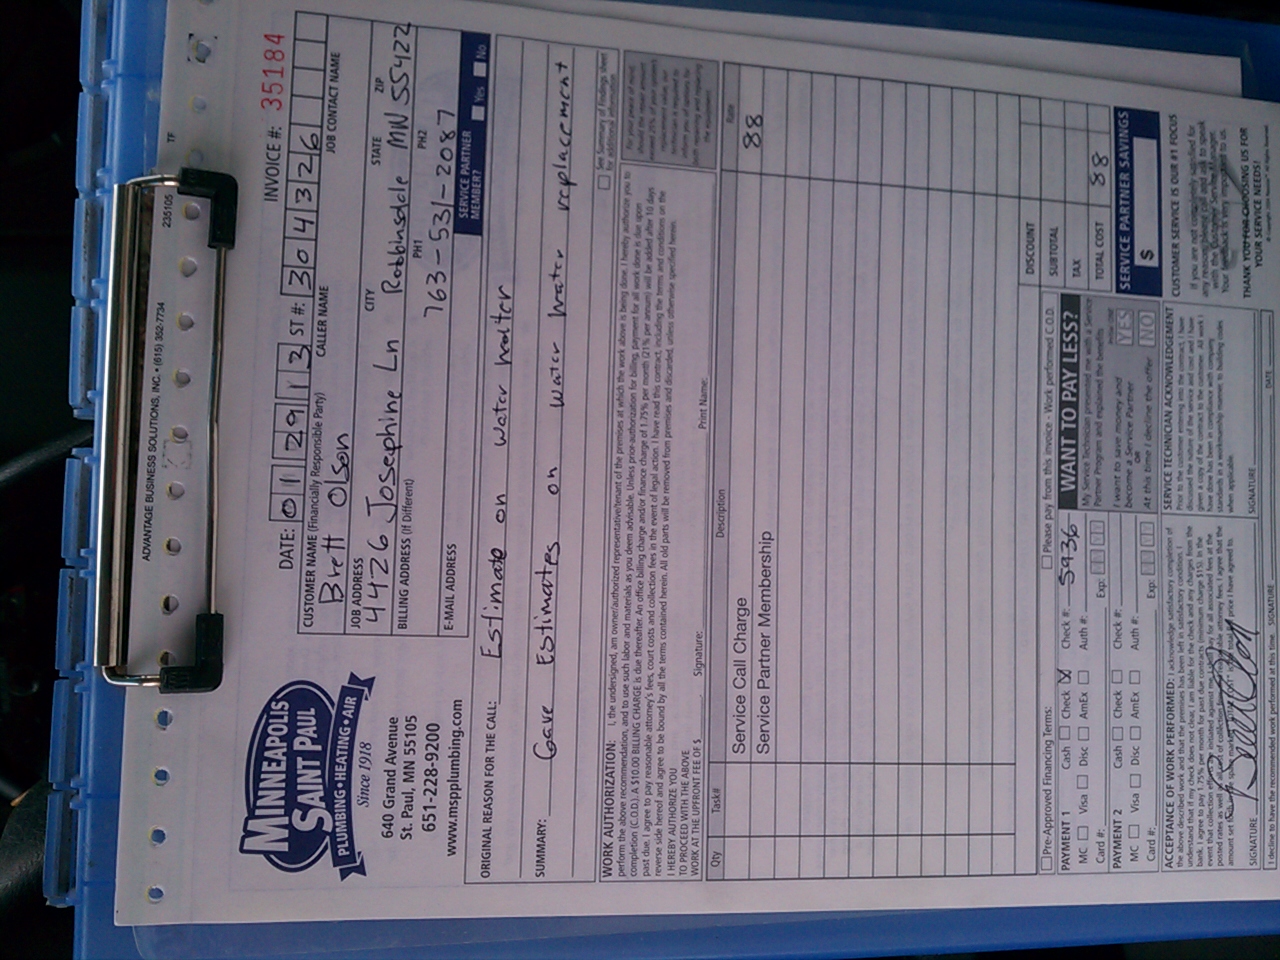 ADVANTAGE BUSINESS SOLUTIONS, INC. • (615) 352-7734
235105
TF
INVOICE #: 35184
MINNEAPOLIS
SAINT PAUL
PLUMBING•HEATING•AIR
Since 1918
640 Grand Avenue
St. Paul, MN 55105
651-228-9200
www.mspplumbing.com
DATE: 012913 ST #: 304326
CUSTOMER NAME (Financially Responsible Party) CALLER NAME JOB CONTACT NAME
Brett Olson
JOB ADDRESS CITY STATE ZIP
4426 Josephine Ln Robbinsdale MN 55422
BILLING ADDRESS (If Different) PH1 PH2
763-531-2087
E-MAIL ADDRESS SERVICE PARTNER MEMBER? Yes No
ORIGINAL REASON FOR THE CALL: Estimate on water heater
SUMMARY: Gave Estimates on water heater replacement
See Summary of Findings sheet
for additional information.
WORK AUTHORIZATION: I, the undersigned, am owner/authorized representative/tenant of the premises at which the work above is being done. I hereby authorize you to
perform the above recommendation, and to use such labor and materials as you deem advisable. Unless prior-authorization for billing, payment for all work done is due upon
completion (C.O.D.). A $10.00 BILLING CHARGE is due thereafter. An office billing charge and/or finance charge of 1.75% per month (21% per annum) will be added after 10 days
past due. I agree to pay reasonable attorney's fees, court costs and collection fees in the event of legal action. I have read this contract, including the terms and conditions on the
reverse side hereof and agree to be bound by all the terms contained herein. All old parts will be removed from premises and discarded, unless otherwise specified herein.
I HEREBY AUTHORIZE YOU
TO PROCEED WITH THE ABOVE
WORK AT THE UPFRONT FEE OF $ Signature: Print Name:
Qty Task# Description Rate
Service Call Charge 88
Service Partner Membership
DISCOUNT
SUBTOTAL
TAX
TOTAL COST 88
Pre-Approved Financing Terms: Please pay from this invoice - Work performed C.O.D.
PAYMENT 1 Cash Check Check #: 5936
MC Visa Disc AmEx Auth #:
Card #: Exp:
PAYMENT 2 Cash Check Check #:
MC Visa Disc AmEx Auth #:
Card #: Exp:
WANT TO PAY LESS?
My Service Technician presented me with a Service
Partner Program and explained the benefits
I want to save money and
become a Service Partner YES
OR
At this time I decline the offer NO
SERVICE PARTNER SAVINGS
$
ACCEPTANCE OF WORK PERFORMED: I acknowledge satisfactory completion of
the above described work and that the premises has been left in satisfactory condition. I
understand that if my check does not clear, I am liable for the check and any charges from the
bank. I agree to pay 1.75% per month for past due contracts (minimum charge $15). In the
SIGNATURE
SERVICE TECHNICIAN ACKNOWLEDGEMENT
Prior to the customer entering into the contract, I have
discussed the nature of the service and cost and have
given a copy of the contract to the customer. All work I
have done has been in compliance with company
standards in a workmanship manner, to building codes
when applicable.
SIGNATURE
CUSTOMER SERVICE IS OUR #1 FOCUS
THANK YOU FOR CHOOSING US FOR
YOUR SERVICE NEEDS!
I decline to have the recommended work performed at this time. SIGNATURE DATE